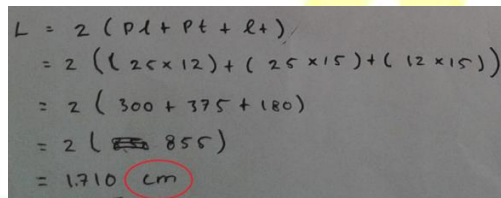 L = 2 ( pl + pt + lt )
= 2 ( ( 25 x 12 ) + ( 25 x 15 ) + ( 12 x 15 ) )
= 2 ( 300 + 375 + 180 )
= 2 ( 855 )
= 1.710 cm